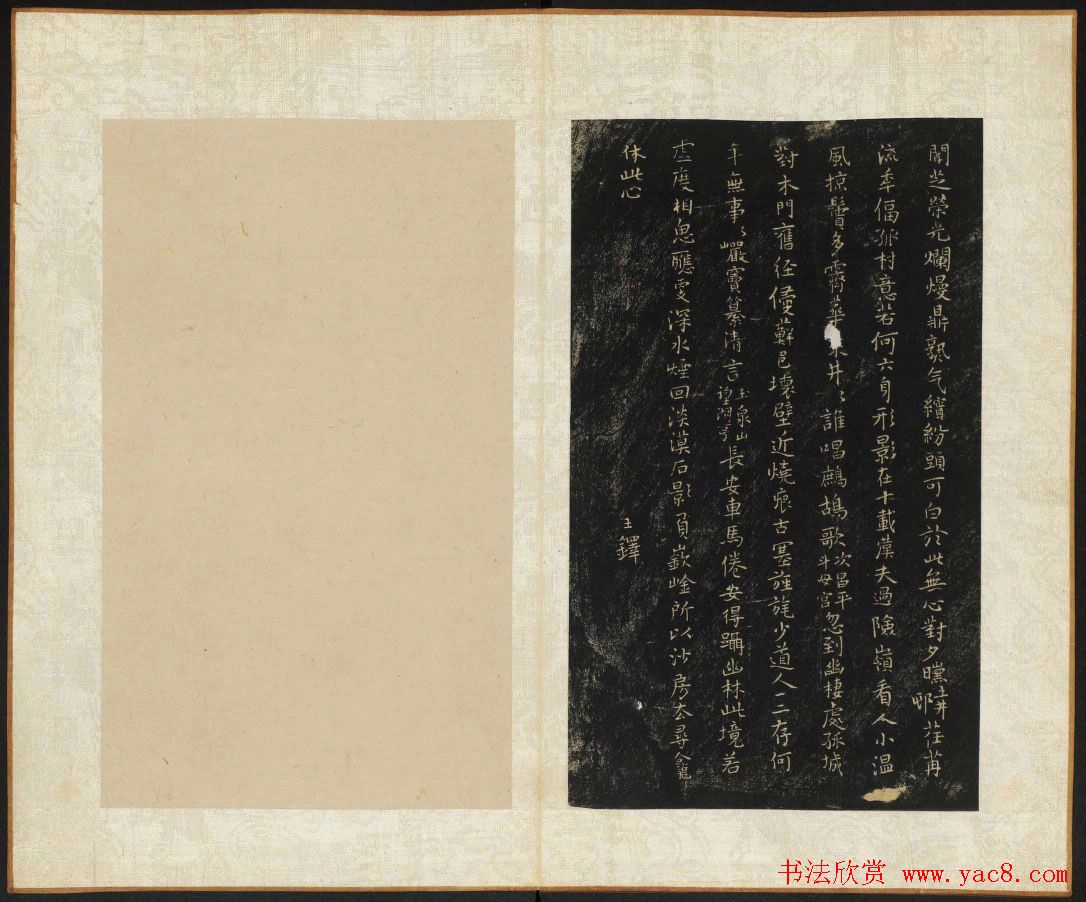 聞芝榮光爛熳鼎氣繽紛頭可白於此無心對夕曛 荏苒
流年偪孤村意若何六身形影在十載僕夫過險嶺看人小溫
風掠鬢多霽華井〻誰唱鷓鴣歌 次昌平斗母宮 忽到幽棲處孤城
對木門舊徑侵蘚邑壞壁近燒痕古塞旌旄少道人一二存何
年無事〻巖竇纂清言 玉泉山望湖亭 長安車馬倦安得躡幽林此境若
虛度相思應更深水煙回淡漠石影負嶔崟所以沙房去尋龕
休此心
王鐸
书法欣赏 www.yac8.com